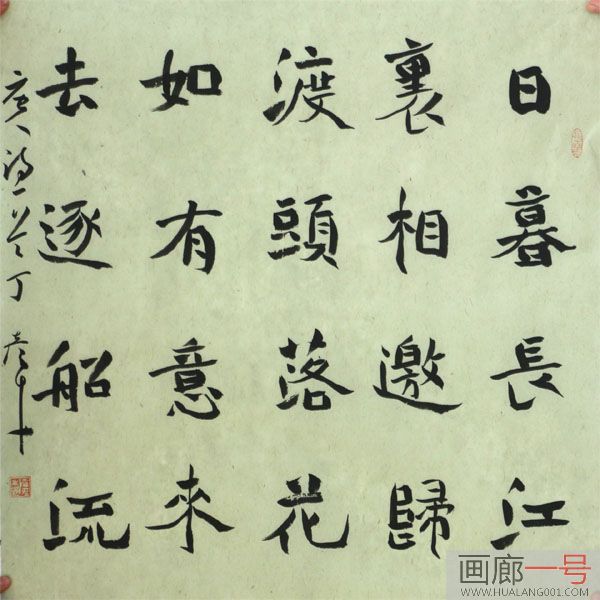 日暮長江
裏相邀歸
渡頭落花
如有意來
去逐船流
唐人詩一首 丁
画廊一号
WWW.HUALANG001.COM